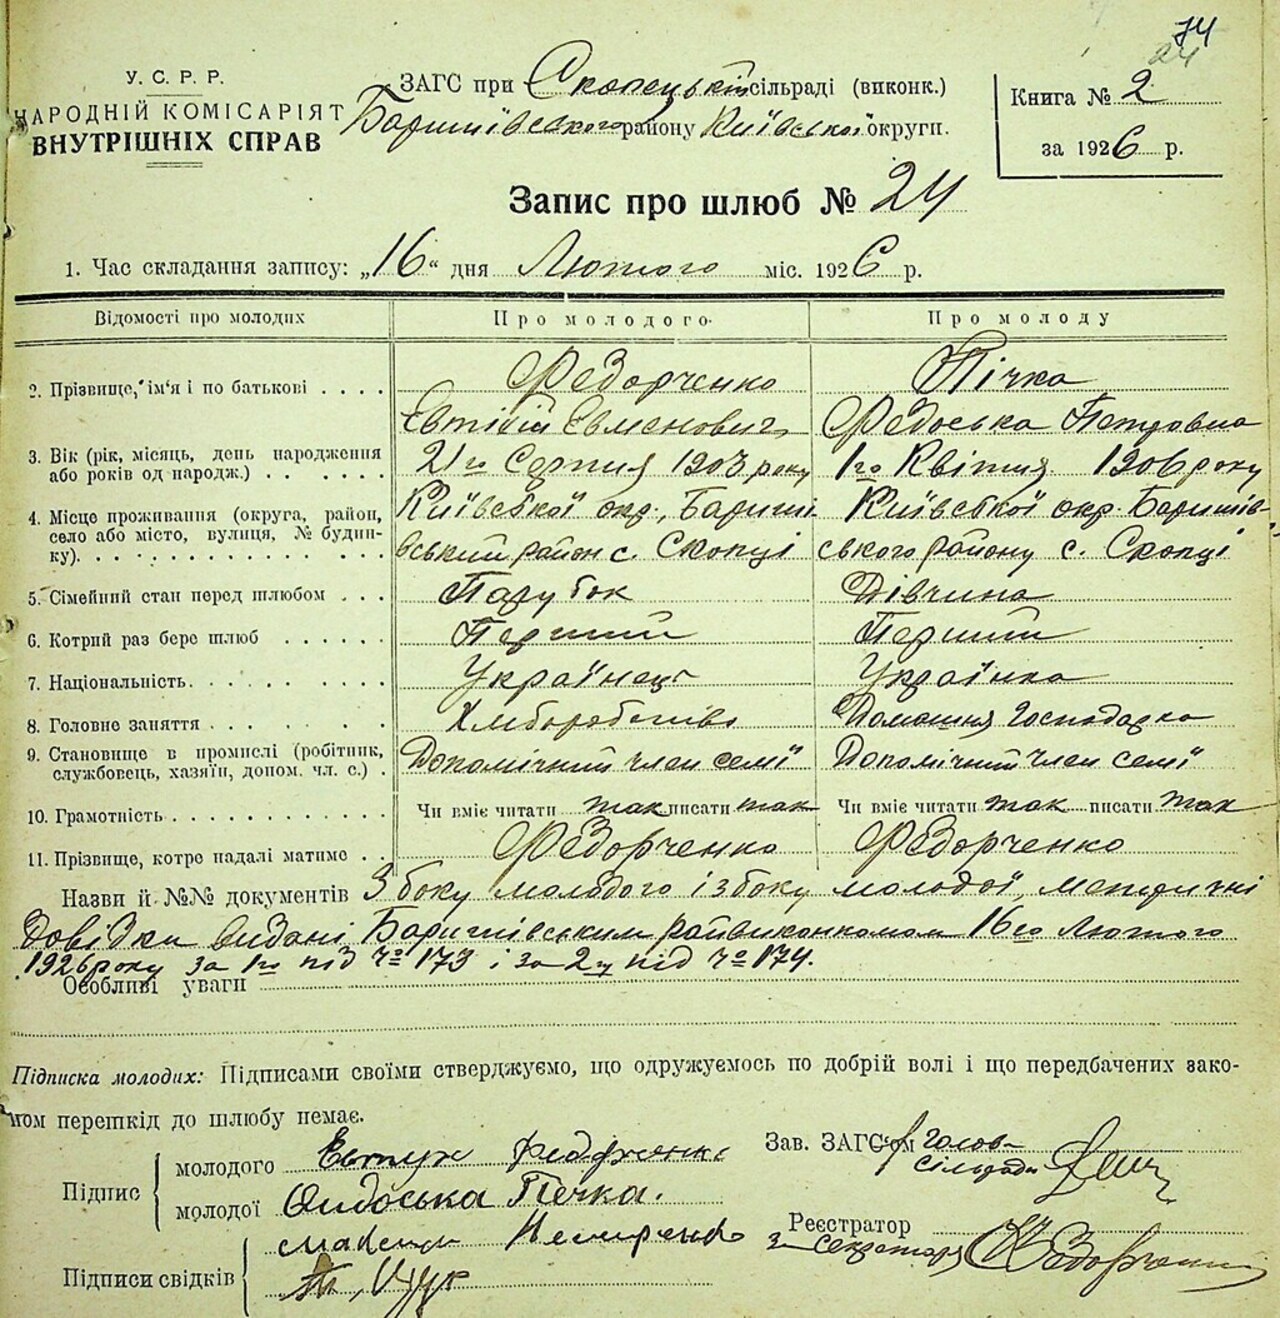 74
24
У. С. Р. Р.
НАРОДНІЙ КОМІСАРІЯТ
ВНУТРІШНІХ СПРАВ
ЗАГС при Скопецькій сільраді (виконк.)
Баришівського району Київської округи.
Книга № 2
за 1926 р.
Запис про шлюб № 24
1. Час складання запису: „16“ дня Лютого міс. 1926 р.
Відомості про молодих Про молодого Про молоду
2. Прізвище, ім'я і по батькові . . . . Федорченко Пічка
Євтихій Євменович Федоська Петровна
3. Вік (рік, місяць, день народження або років од народж.) . . . . . . 21го Серпня 1903 року 1го Квітня 1906 року
4. Місце проживання (округа, район, село або місто, вулиця, № будинку). Київської окр., Бариші- Київської окр. Баришів-
вський район с. Скопці ського району с. Скопці
5. Сімейний стан перед шлюбом . . . Парубок Дівчина
6. Котрий раз бере шлюб . . . . . . Перший Перший
7. Національність. . . . . . . . . . Українець Українка
8. Головне заняття . . . . . . . Хліборобство Домашня Господарка
9. Становище в промислі (робітник, службовець, хазяїн, допом. чл. с.) . Допомічний член семї Допомічний член семї
10. Грамотність . . . . . . . . . . . . Чи вміє читати так писати так Чи вміє читати так писати так
11. Прізвище, котре надалі матиме . . Федорченко Федорченко
Назви й №№ документів З боку молодого і з боку молодої, метричні
Довідки видані Баришівським райвиконкомом 16го Лютого
1926 року за 1го під № 173 і за 2гу під № 174.
Особливі уваги
Підписка молодих: Підписами своїми стверджуємо, що одружуємось по добрій волі і що передбачених зако-
ном перешкід до шлюбу немає.
Підпис
молодого Евтух Федорченко
молодої Видоська Печка.
Підписи свідків
Зав. ЗАГСом Голов-
сільради
Реєстратор
за секретаря Федорченко